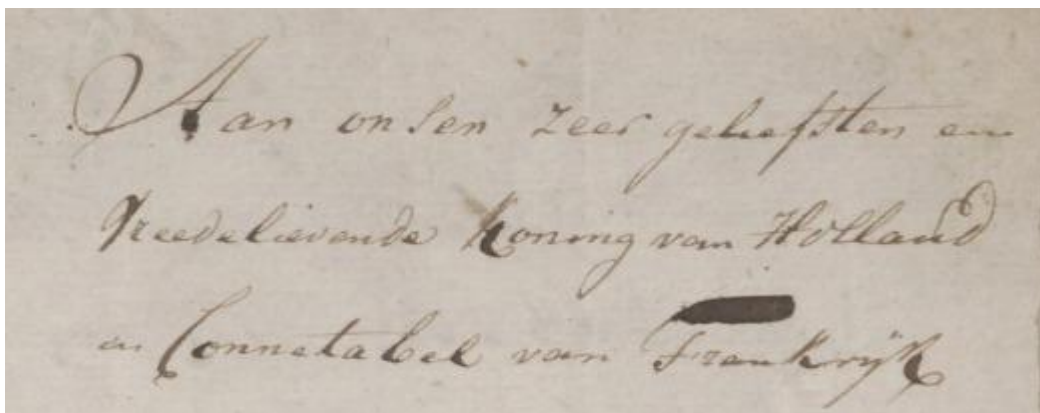 Aan onsen zeer geliefsten en
Vreedelievende Koning van Holland
en Connetabel van Frankrijk